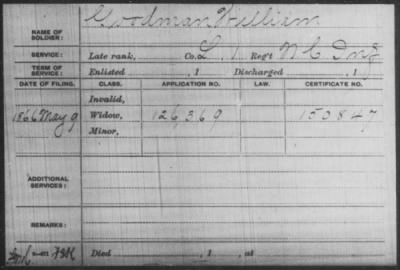 NAME OF SOLDIER: Goodman William
SERVICE: Late rank, Co. L, 1 Reg't N C Inf
TERM OF SERVICE: Enlisted , 1 Discharged , 1
DATE OF FILING. CLASS. APPLICATION NO. LAW. CERTIFICATE NO.
Invalid,
1866 May 9 Widow, 126,369 150847
Minor,
ADDITIONAL SERVICES:
REMARKS:
Died , 1 , at